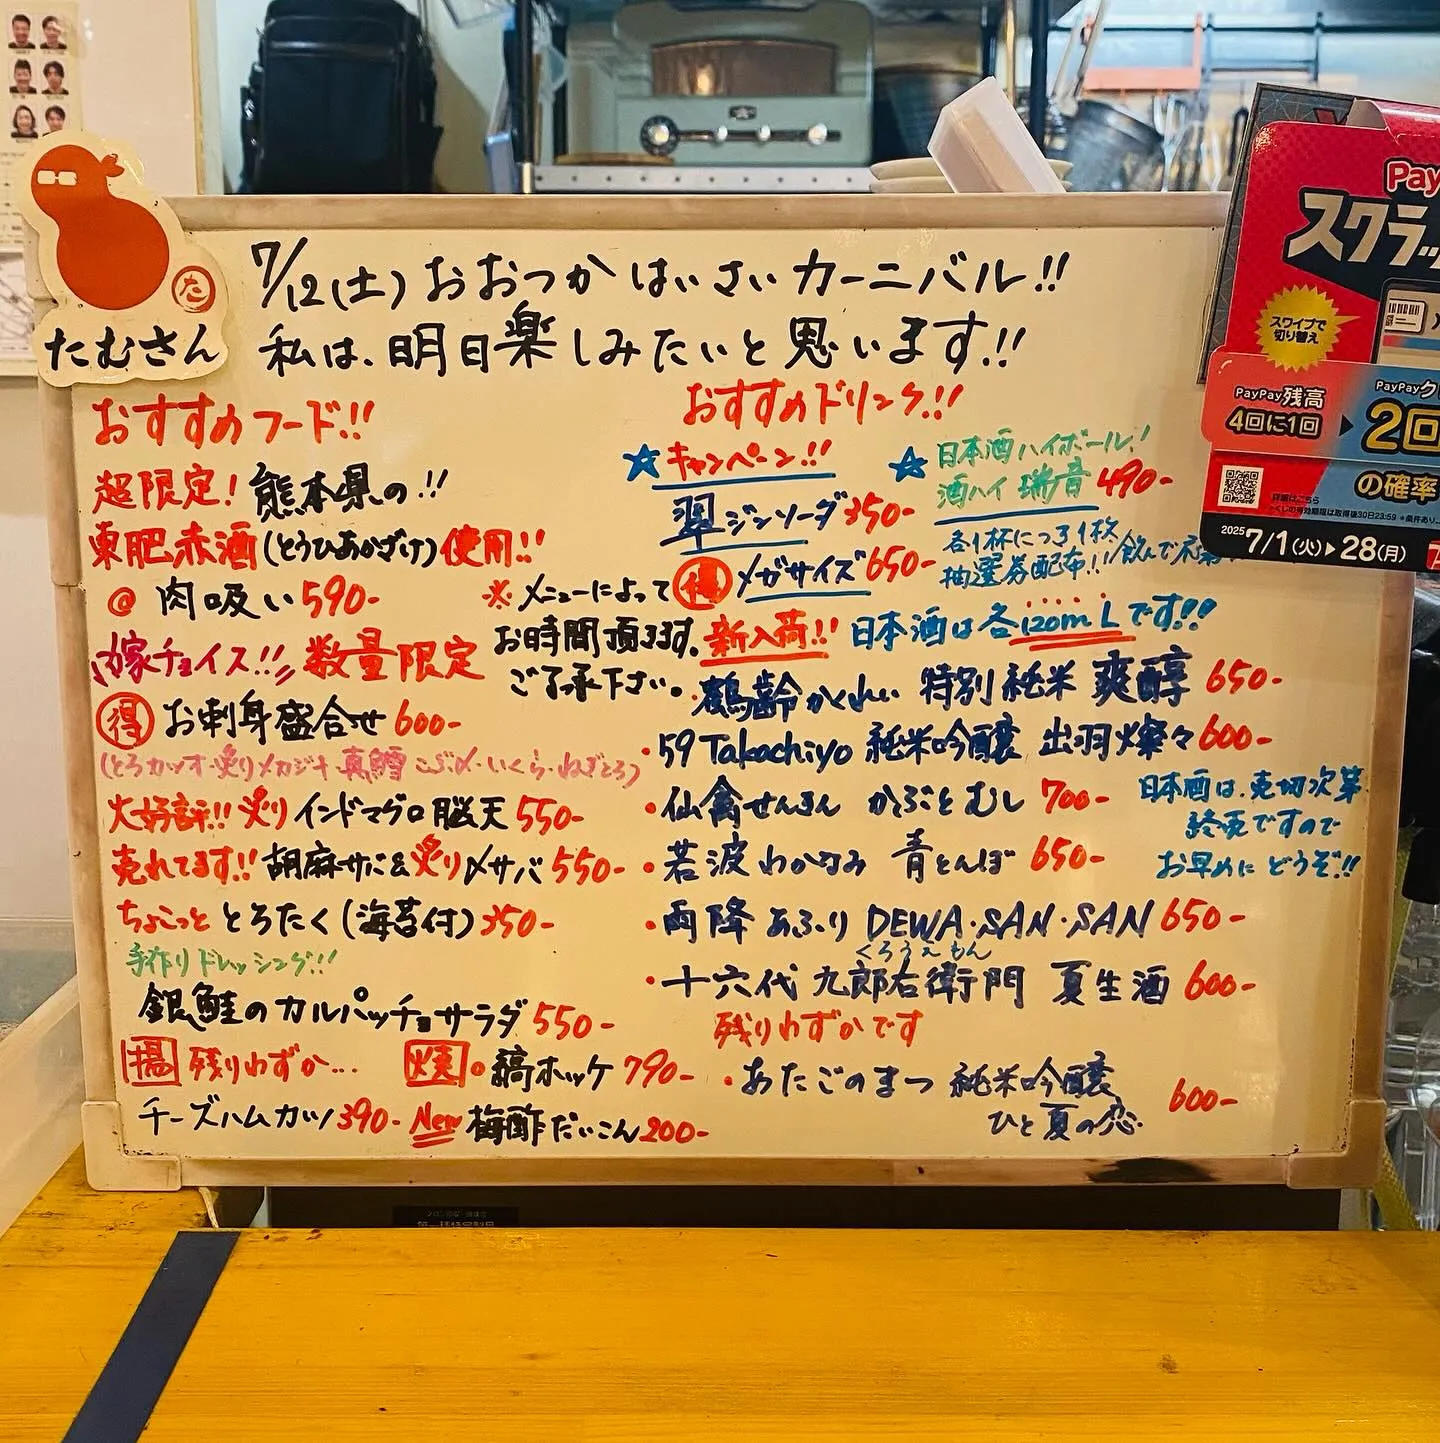 7/12(土)おおつかはいさいカーニバル!!
私は、明日楽しみたいと思います!!
た
たむさん
おすすめフード!!
超限定!熊本県の!!
東肥赤酒(とうひあかざけ)使用!!
@ 肉吸い590-
嫁チョイス!! 数量限定
得 お刺身盛合せ600-
(とろカツオ・炙りメカジキ 真鱈こぶ〆・いくら・ねぎとろ)
大好評!!炙りインドマグロ脳天550-
売れてます!!胡麻サバ&炙り〆サバ550-
ちょこっととろたく(海苔付)350-
手作りドレッシング!!
銀鮭のカルパッチョサラダ550-
揚 残りわずか...
チーズハムカツ390-
焼。縞ホッケ790-
New梅酢だいこん200-
※メニューによって
お時間頂きます。
ご了承下さい。
おすすめドリンク!!
☆キャンペーン!!
翠ジンソーダ350-
得メガサイズ650-
☆日本酒ハイボール!
酒ハイ 瑞音490-
各1杯につき1枚
抽選券配布!!飲んで
新入荷!! 日本酒は各120mLです!!
・鶴齢かくれい 特別純米 爽醇 650-
・59Takachiyo 純米吟醸 出羽燦々600-
・仙禽せんきん かぶとむし 700-
・若波わかなみ 青とんぼ 650-
・雨降あふり DEWA・SAN・SAN 650-
くろうえもん
・十六代 九郎右衛門 夏生酒 600-
残りわずかです
・あたごのまつ 純米吟醸
ひと夏の恋 600-
日本酒は、売切次第
終売ですので
お早めにどうぞ!!
Pay
スクラッ
スワイプで
切り替え
PayPay残高
4回に1回
PayPayク
2回
の確率
詳細はこちら
2025 7/1(火)▶28(月)